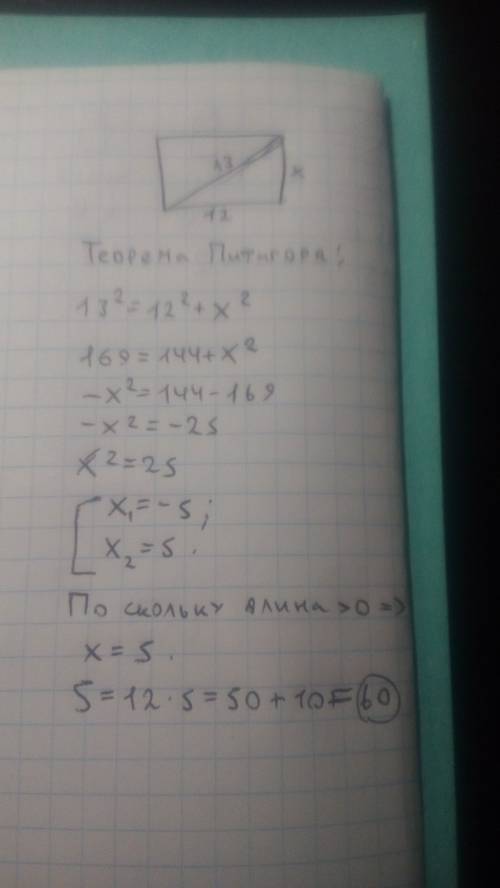 13
x
12
Теорема Питагора!
13² = 12² + x²
169 = 144 + x²
-x² = 144 - 169
-x² = -25
x² = 25
x₁ = -5;
x₂ = 5.
По скольку длина > 0 =>
x = 5.
S = 12 · 5 = 50 + 10 = 60